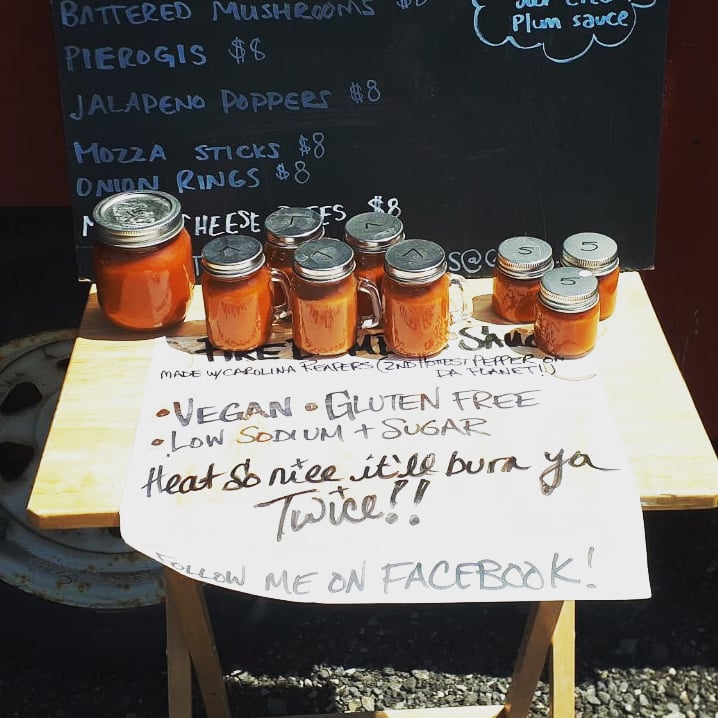 BATTERED MUSHROOMS $8
Plum sauce
PIEROGIS $8
JALAPENO POPPERS $8
MOZZA STICKS $8
ONION RINGS $8
CHEESE $8
5
5
5
MADE W/ CAROLINA REAPERS (2ND HOTTEST PEPPER ON
DA PLANET!)
• VEGAN • GLUTEN FREE
• LOW SODIUM + SUGAR
Heat so nice it'll burn ya
Twice!!
FOLLOW ME ON FACEBOOK!